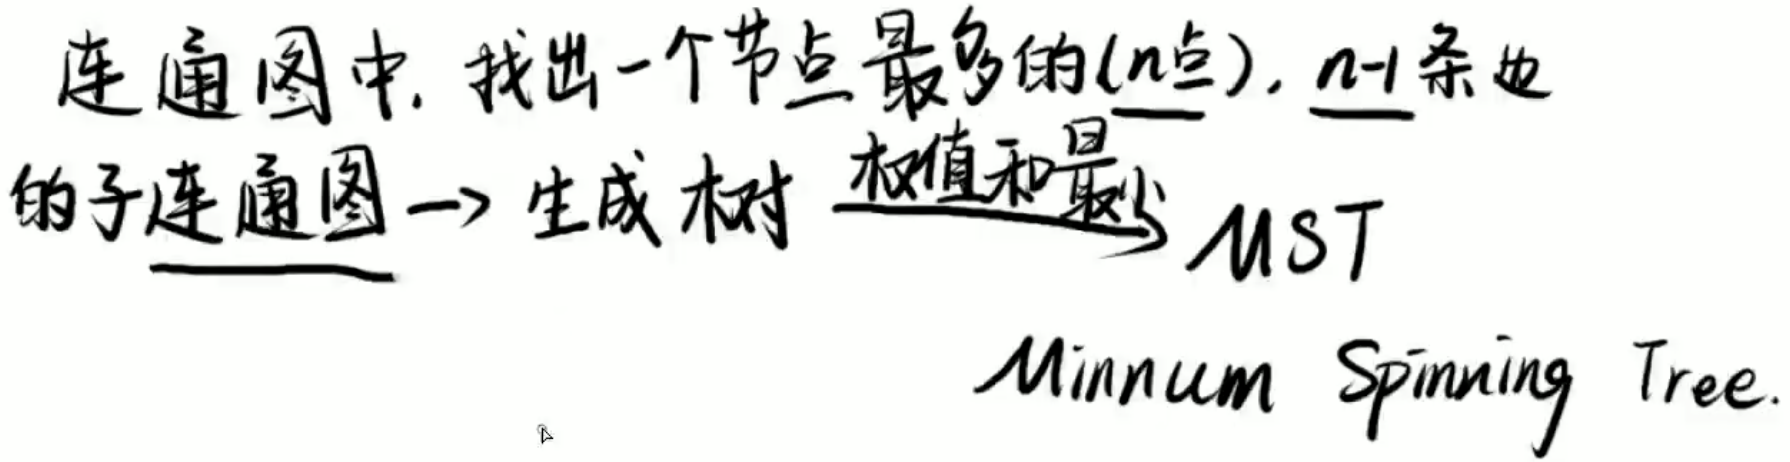 连通图中. 找出一个节点最多的(n点). n-1条边
的子连通图 → 生成树 权值和最小 MST
Minnum Spinning Tree.